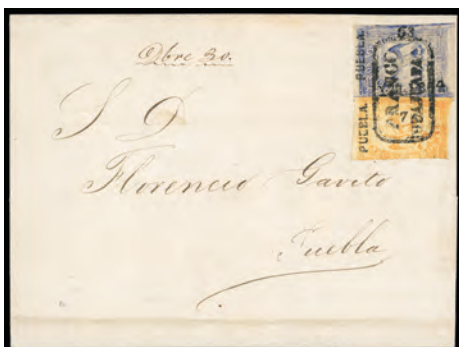 Dbre 30.
S D
Florencio Gavito
Puebla
PUEBLA.
PUEBLA.
FRANCO
7